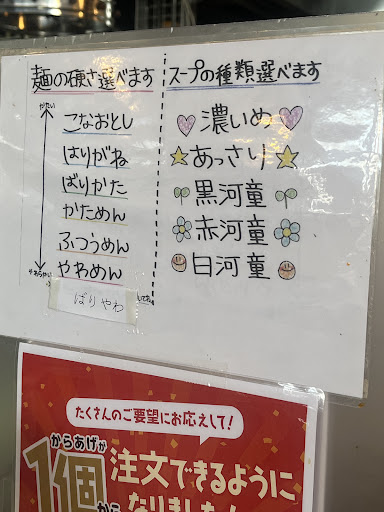 麺の硬さ選べます
かたい
こなおとし
はりがね
ばりかた
かためん
ふつうめん
やわめん
ばりやわ
スープの種類選べます
濃いめ
あっさり
黒河童
赤河童
白河童
たくさんのご要望にお応えして！
からあげが
1個から
注文できるように
なりました